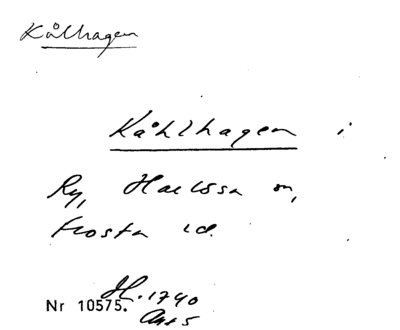 Kålhagen
Kåhlhagen i
Ry, Harlösa sn,
Frosta hd.
Nr 10575. H. 1790
Art 5